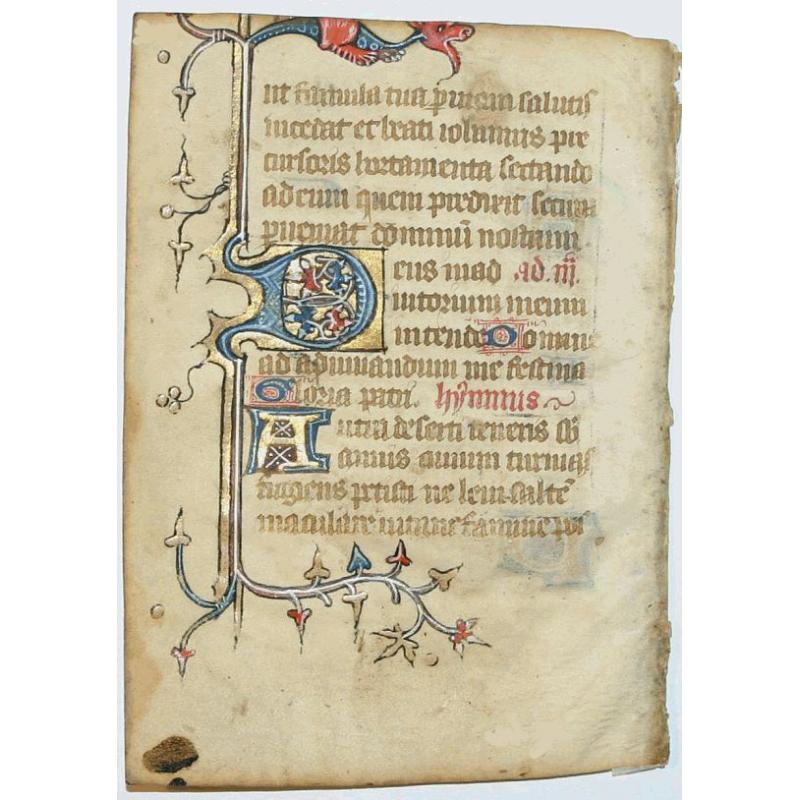 ut famula tua p uiam salutis
incedat et beati iohannis pre
cursoris hortamenta sectando
ad eum quem predixit secura
pueniat dominū nostrum.
Deus in ad ad iij.
iutorium meum
intende Domine
ad adiuuandum me festina
Gloria patri. hymnus
Antra deserti teneris sb
annis ciuium turmas
fugiens petisti ne leui saltē
maculare uitam famine pos